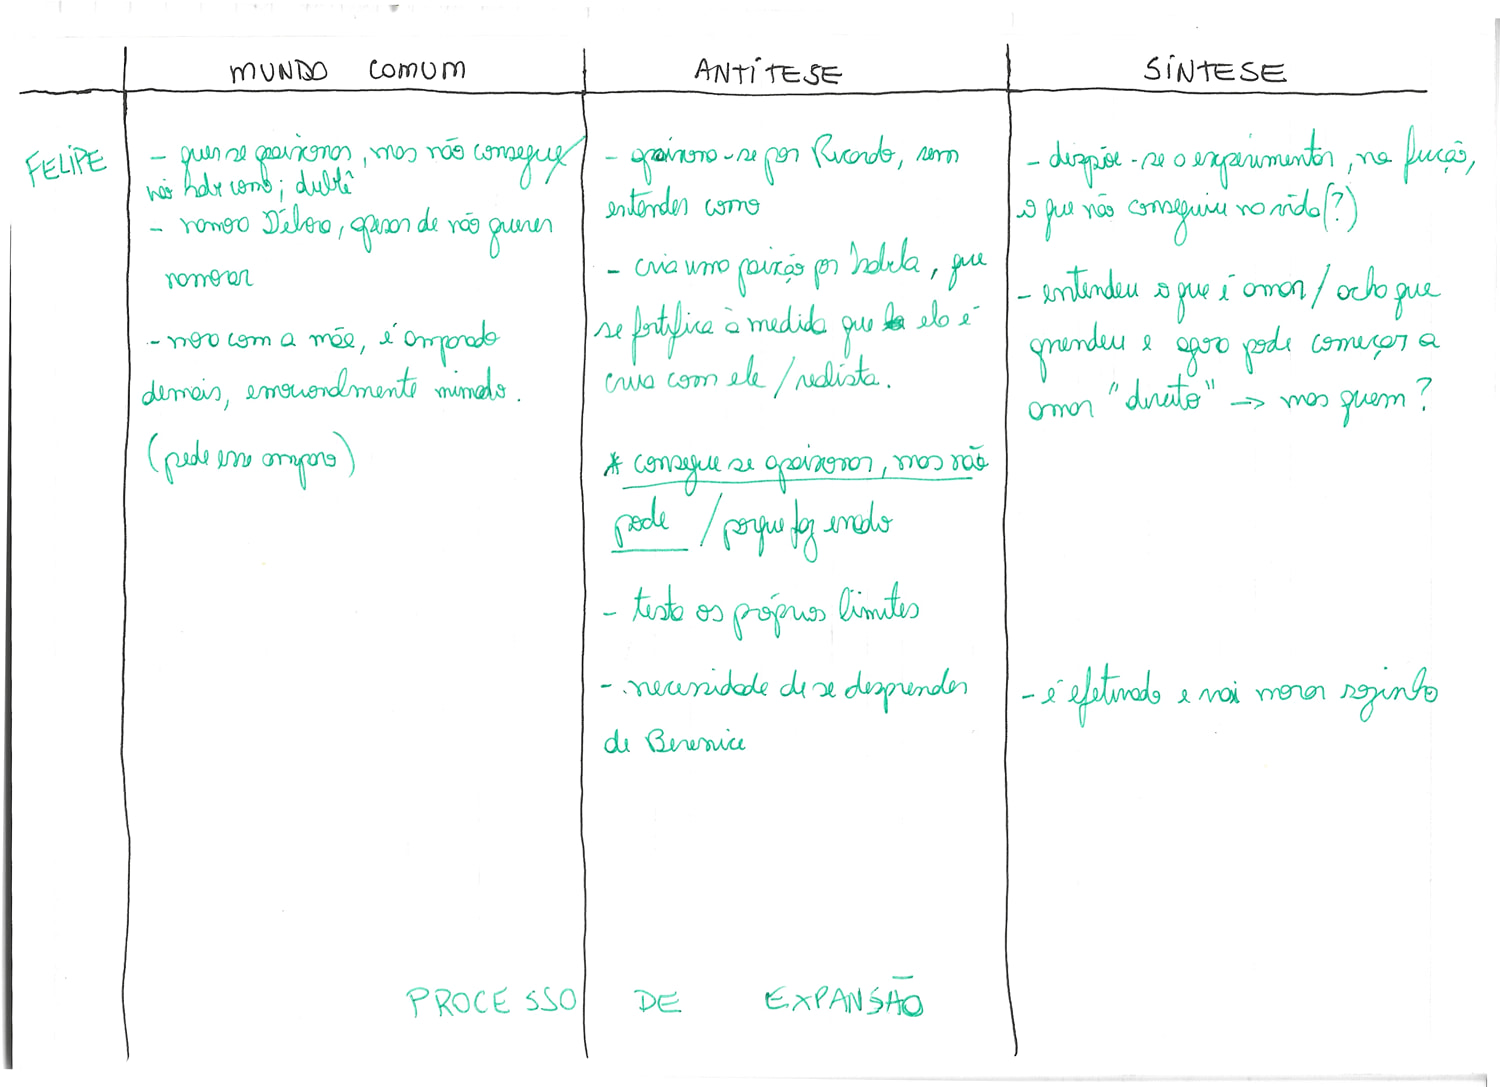 MUNDO COMUM
ANTÍTESE
SÍNTESE
FELIPE
- quer se apaixonar, mas não consegue/
não sabe como; dublê
- namora Débora, apesar de não querer
namorar
- mora com a mãe, é amparado
demais, emocionalmente mimado.
(pede esse amparo)
- apaixona-se por Ricardo, sem
entender como
- cria uma paixão por Isabela, que
se fortifica à medida que ela é
crua com ele / realista.
* consegue se apaixonar, mas não
pode / porque faz errado
- testa os próprios limites
- necessidade de se desprender
de Berenice
- dispõe-se a experimentar, na ficção,
o que não conseguiu na vida (?)
- entendeu o que é amor / acha que
aprendeu e agora pode começar a
amar "direito" -> mas quem?
- é efetivado e vai morar sozinho
PROCESSO DE EXPANSÃO